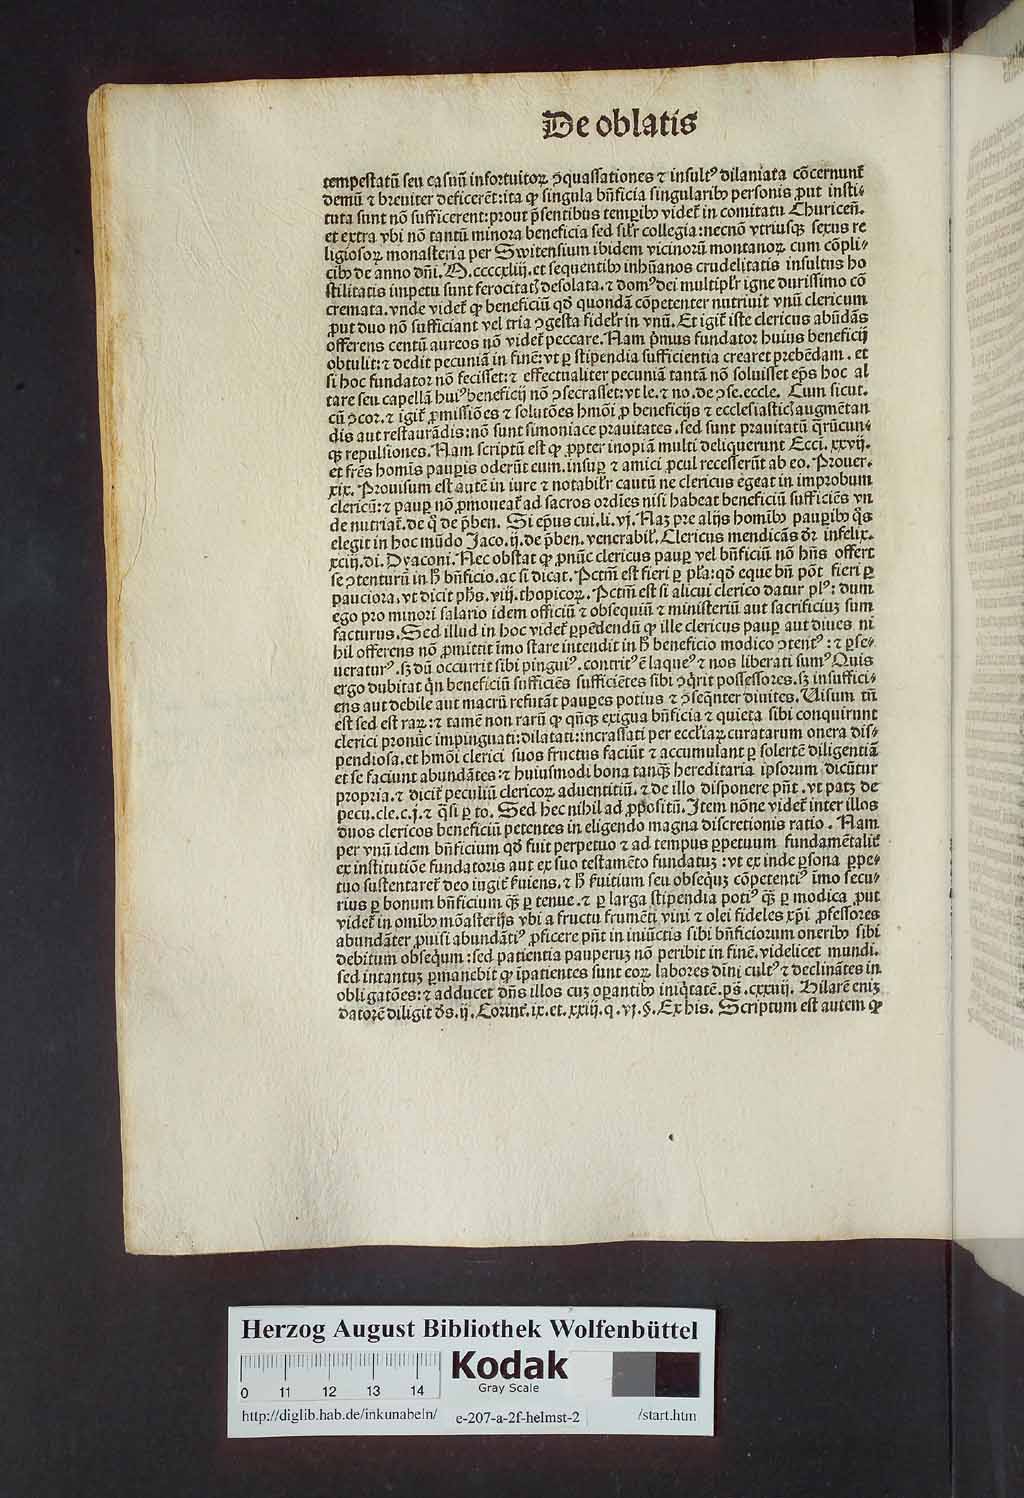 De oblatis
tempestatū seu casuū infortuitoꝝ ↄ̨quassationes ⁊ insultꝰ dilaniata cōcernunt̄
demū ⁊ breuiter deficerēt: ita ꝙ singula bn̄ficia singularibꝰ personis ꝓut insti⸗
tuta sunt nō sufficerent: prout p̄sentibus tempibꝰ videt̄ in comitatu Thuriceñ.
et extra vbi nō tantū minora beneficia sed silr̄ collegia: necnō vtriusqꝫ sexus re
ligiosoꝝ monasteria per Switensium ibidem vicinorū montanoꝝ cum cōpli⸗
cibꝰ de anno dn̄i. M.ccccxliij. et sequentibꝰ inhūanos crudelitatis insultus ho
stilitatis impetu sunt ferocitatꝭ desolata. ⁊ domꝰ dei multiplr̄ igne durissimo cō
cremata. vnde videt̄ ꝙ beneficiū qd̄ quondā cōpetenter nutriuit vnū clericum
ꝓut duo nō sufficiant vel tria ↄgesta fidelr̄ in vnū. Et igit̄ iste clericus abūdās
offerens centū aureos nō videt̄ peccare. Nam p̄mus fundator huius beneficij
obtulit: ⁊ dedit pecuniā in finē: vt ꝑ stipendia sufficientia crearet prebēdam. et
si hoc fundator nō fecisset: ⁊ effectualiter pecuniā tantā nō soluisset ep̄s hoc al
tare seu capellā huiꝰ beneficij nō ↄsecrasset: vt le. ⁊ no. de ↄse. eccle. Cum sicut.
cū ↄcor. ⁊ igit̄ ꝓmissiōes ⁊ solutōes hmōi ꝓ beneficijs ⁊ ecclesiasticꝭ augmētan
dis aut restaurādis: nō sunt simoniace prauitates. sed sunt prauitatū qr̄ūcun⸗
qꝫ repulsiones. Nam scriptū est ꝙ ꝓpter inopiā multi deliquerunt Ecci. xxvij.
et frēs homīs paupis oderūt eum. insuꝑ ⁊ amici ꝓcul recesserūt ab eo. Prouer.
xix. Prouisum est autē in iure ⁊ notabilr̄ cautū ne clericus egeat in improbum
clericū: ⁊ pauꝑ nō ꝓmoueat̄ ad sacros ordīes nisi habeat beneficiū sufficiēs vn
de nutriat̄. de q̄ de p̄ben. Si ep̄us cui. li. vj. Naꝫ pre alijs homībꝰ pauꝑibꝰ q̄s
elegit in hoc mūdo Jaco. ij. de p̄ben. venerabil̄. Clericus mendicās dr̄ infelix.
xciij. di. Dyaconi. Nec obstat ꝙ ꝓnūc clericus pauꝑ vel bn̄ficiū nō hn̄s offert
se ↄtenturū in h̄ bn̄ficio. ac si dicat. Pctm̄ est fieri ꝑ plr̄a: qd̄ eque bn̄ pōt fieri ꝑ
pauciora. vt dicit ph̄s. viij. thopicoꝝ. Pctm̄ est si alicui clerico datur plꝰ: dum
ego pro minori salario idem officiū ⁊ obsequiū ⁊ ministeriū aut sacrificiuꝫ sum
facturus. Sed illud in hoc videt̄ ꝑpēdendū ꝙ ille clericus pauꝑ aut diues ni
hil offerens nō ꝓmittit īmo stare intendit in h̄ beneficio modico ↄtentꝰ: ⁊ ꝑse⸗
ueraturꝰ. sꝫ dū occurrit sibi pinguiꝰ. contritꝰ ē laqueꝰ ⁊ nos liberati sumꝰ Quis
ergo dubitat qn̄ beneficiū sufficiēs sufficiētes sibi ↄq̄rit possessores. sꝫ insuffici⸗
ens aut debile aut macrū refutāt pauꝑes potius ⁊ ↄseqn̄ter diuites. Uisum tn̄
est sed est raꝝ: ⁊ tamē non rarū ꝙ qn̄qꝫ exigua bn̄ficia ⁊ quieta sibi conquirunt
clerici pronūc impinguati: dilatati: incrassati per eccl̄iaꝝ curatarum onera dis⸗
pendiosa. et hmōi clerici suos fructus faciūt ⁊ accumulant ꝑ solertē diligentiā
et se faciunt abundātes: ⁊ huiusmodi bona tanq̄ꝫ hereditaria ipsorum dicūtur
propria. ⁊ dicit̄ peculiū clericoꝝ aduentitiū. ⁊ de illo disponere pn̄t. vt patꝫ de
pecu. cle. c. j. ⁊ q̄si ꝑ to. Sed hec nihil ad ꝓpositū. Item nōne videt̄ inter illos
duos clericos beneficiū petentes in eligendo magna discretionis ratio. Nam
per vnū idem bn̄ficium qd̄ fuit perpetuo ⁊ ad tempus ꝑpetuum fundamētalit̄
ex institutiōe fundatoris aut ex suo testamēto fundatuꝫ: vt ex inde ꝑsona ꝑpe⸗
tuo sustentaret̄ deo iugit̄ s̄uiens. ⁊ h̄ s̄uitium seu obseqꝫ cōpetentiꝰ īmo secu⸗
rius ꝑ bonum bn̄ficium q̄ꝫ ꝑ tenue. ⁊ ꝑ larga stipendia potiꝰ q̄ꝫ ꝑ modica ꝓut
videt̄ in omībꝰ mōasterijs vbi a fructu frumēti vini ⁊ olei fideles xp̄i ꝓfessores
abundāter ꝓuisi abundātiꝰ ꝓficere pn̄t in iniūctis sibi bn̄ficiorum oneribꝰ sibi
debitum obseqūm: sed patientia pauperuꝫ nō peribit in finē. videlicet mundi.
sed intantuꝫ ꝑmanebit ꝙ īpatientes sunt eoꝝ labores dīni cultꝰ ⁊ declināntes in
obligatōes: ⁊ adducet dn̄s illos cuꝫ oꝑantibꝰ iniq̄tatē. ps̄. cxxiiij. Hilarē eniꝫ
datorē diligit ds̄. ij. Corint̄. ix. et. xxiij. q. vj. §. Ex his. Scriptum est autem ꝙ
Herzog August Bibliothek Wolfenbüttel
Kodak
Gray Scale
0 11 12 13 14
http://diglib.hab.de/inkunabeln/ e-207-a-2f-helmst-2 /start.htm